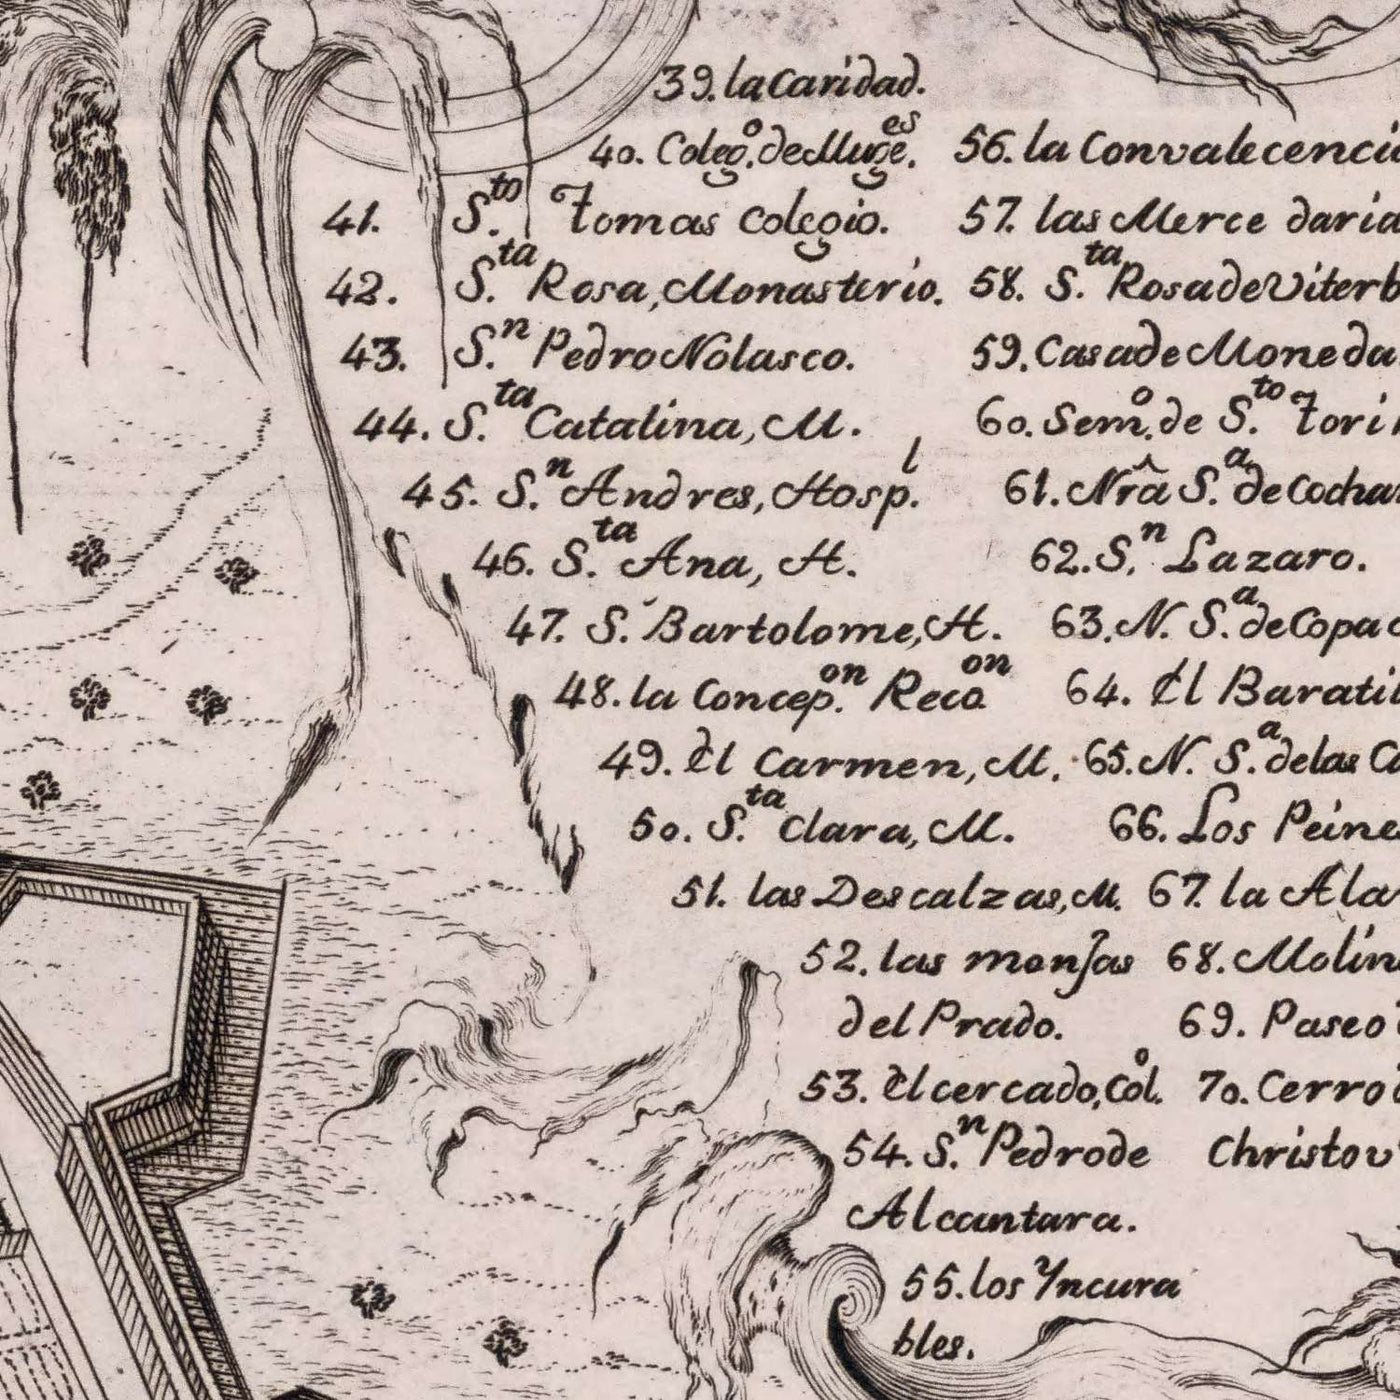 39. la Caridad.
40. Coleg.º de Muge.es
41. S.to Tomas Colegio.
42. S.ta Rosa, Monasterio.
43. S.n Pedro Nolasco.
44. S.ta Catalina, M.
45. S.n Andres, Hosp.l
46. S.ta Ana, H.
47. S. Bartolome, H.
48. la Concep.on Reco.on
49. El Carmen, M.
50. S.ta Clara, M.
51. las Descalzas, M.
52. las monjas
del Prado.
53. El cercado, Col.º
54. S.n Pedro de
Alcantara.
55. los Yncura
bles.
56. la Convalecenci
57. las Merce daria
58. S.ta Rosa de Viterb
59. Casa de Moneda
60. Sem.º de S.to Tori
61. Nrâ S.a de Cocha
62. S.n Lazaro.
63. N. S.a de Copa
64. El Barati
65. N. S.a de las C
66. Los Peine
67. la Ala
68. Molin
69. Paseo
70. Cerro
Christov